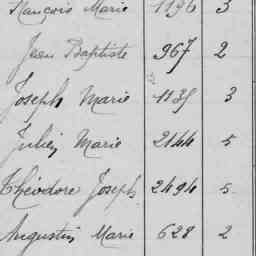 François Marie 1196 3
Jean Baptiste 967 2
Joseph Marie 1135 3
Julien Marie 2144 5
Théodore Joseph 2494 5
Augustin Marie 628 2